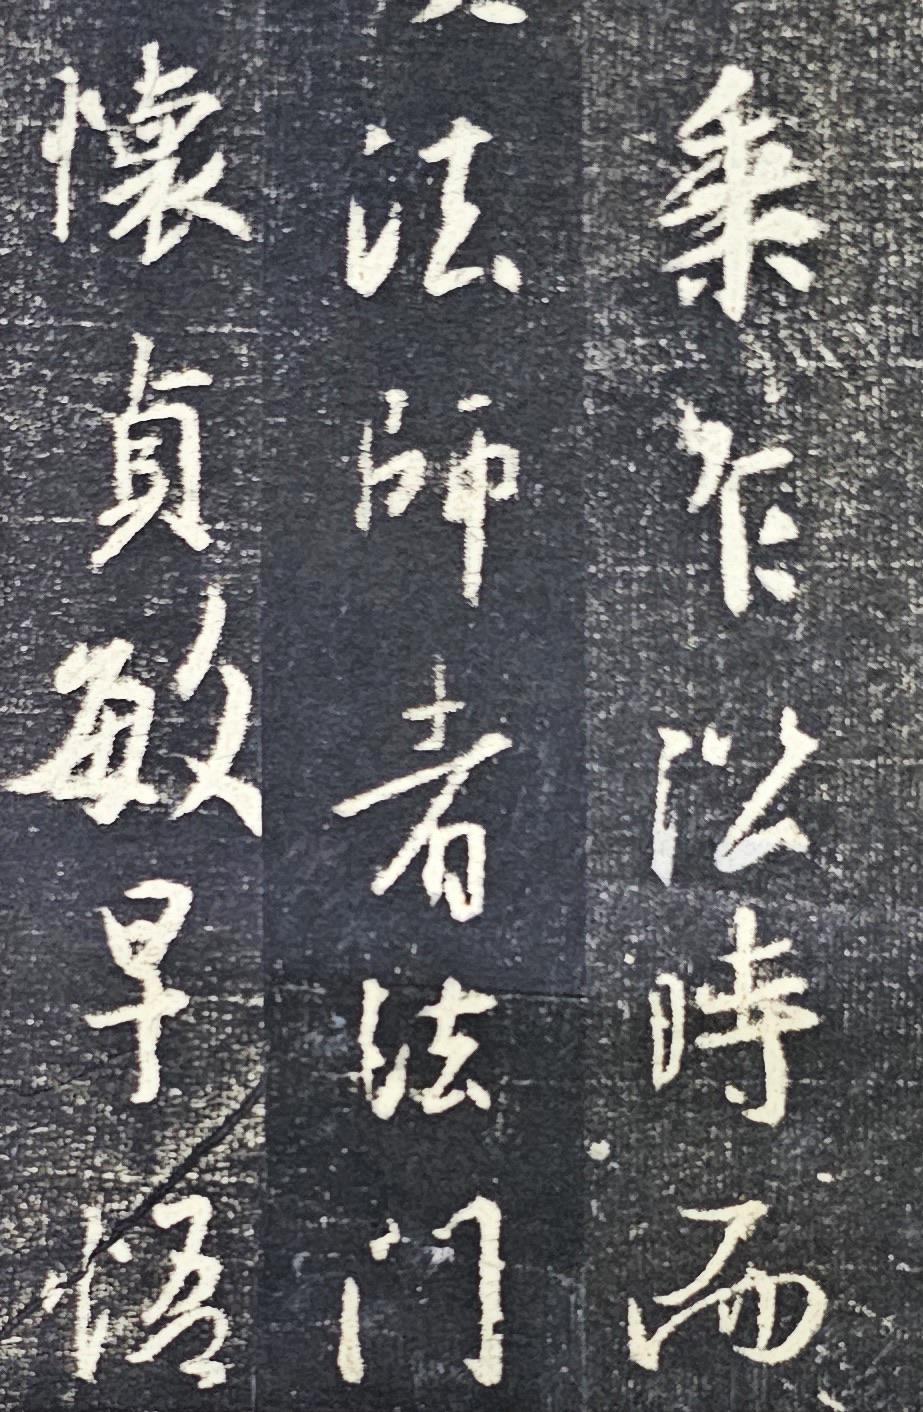 乘乍沿時而
法師者法門
懷貞敏早悟